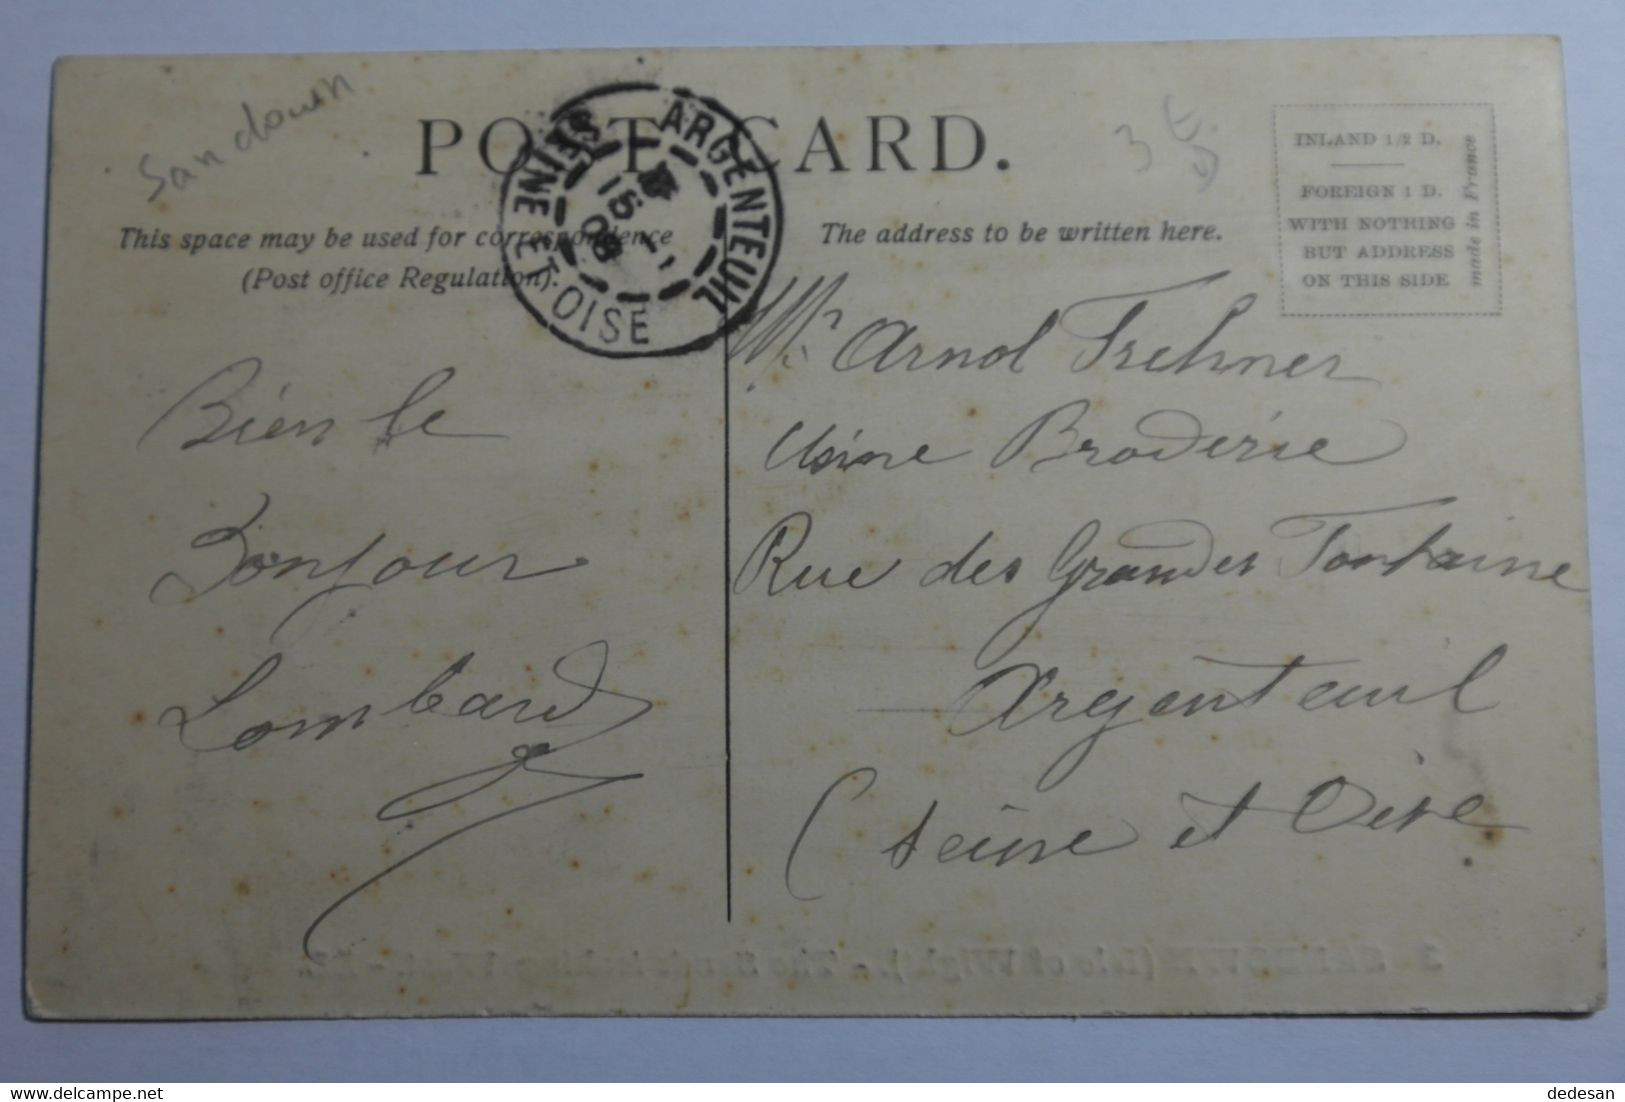 Sandown
POST CARD.
3 €
INLAND 1/2 D.
FOREIGN 1 D.
WITH NOTHING
BUT ADDRESS
ON THIS SIDE
made in France
This space may be used for correspondence
(Post office Regulation).
The address to be written here.
ARGENTEUIL
SEINE ET OISE
15
08
Bien le
Bonjour
Lombard
Mr Arnol
Usine Broderie
Rue des Grandes Fontaine
Argenteuil
(Seine et Oise
SANDOWN (Isle of Wight). - The Sands looking West. - LL.
delcampe.net
dedesan